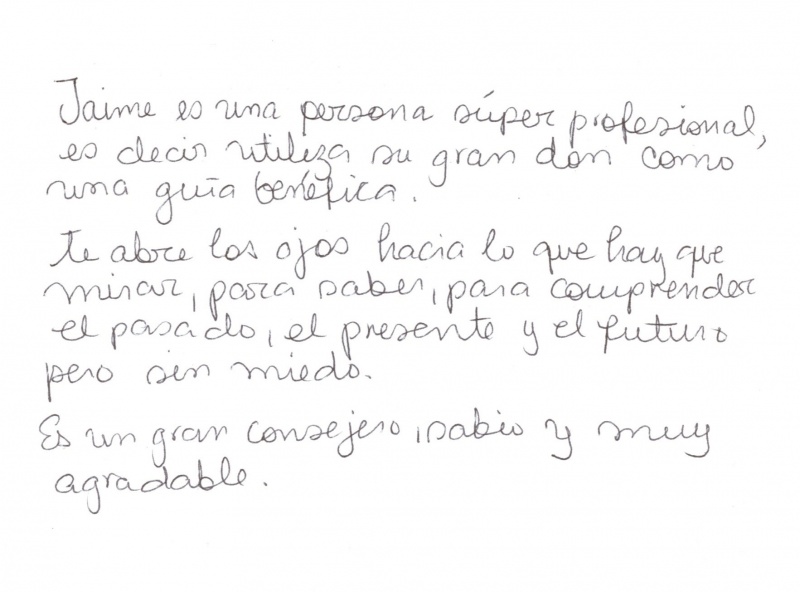 Jaime es una persona súper profesional,
es decir utiliza su gran don como
una guía benéfica.
te abre los ojos hacia lo que hay que
mirar, para saber, para comprender
el pasado, el presente y el futuro
pero sin miedo.
Es un gran consejero, sabio y muy
agradable.